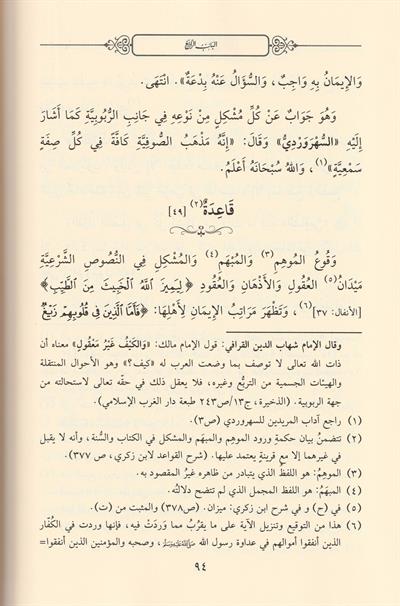 الباب الرابع
وَالإِيمَانُ بِهِ وَاجِبٌ، وَالسُّؤَالُ عَنْهُ بِدْعَةٌ». انْتَهَى.
وَهُوَ جَوَابٌ عَنْ كُلِّ مُشْكِلٍ مِنْ نَوْعِهِ فِي جَانِبِ الرُّبُوبِيَّةِ كَمَا أَشَارَ
إِلَيْهِ «السُّهْرَوَرْدِيُّ» وَقَالَ: «إِنَّهُ مَذْهَبُ الصُّوفِيَّةِ كَافَّةً فِي كُلِّ صِفَةٍ
سَمْعِيَّةٍ»(١)، وَاللهُ سُبْحَانَهُ أَعْلَمُ.
قَاعِدَةٌ(٢) [٤٩]
وُقُوعُ المُوهِمِ(٣) وَالمُبْهَمِ(٤) وَالمُشْكِلِ فِي النُّصُوصِ الشَّرْعِيَّةِ
مَيْدَانُ(٥) العُقُولِ وَالأَذْهَانِ وَالعُقُودِ ﴿لِيَمِيزَ اللَّهُ الْخَبِيثَ مِنَ الطَّيِّبِ﴾
[الأنفال: ٣٧](٦)، وَتَظْهَرَ مَرَاتِبُ الإِيمَانِ لِأَهْلِهَا: ﴿فَأَمَّا الَّذِينَ فِي قُلُوبِهِمْ زَيْغٌ
= وقال الإمام شهاب الدين القرافي: قول الإمام مالك: «وَالكَيْفُ غَيْرُ مَعْقُولٍ» معناه أن
ذات الله تعالى لا توصف بما وضعت العرب له «كيف؟» وهو الأحوال المتنقلة
والهيئات الجسمية من التربُّع وغيره، فلا يعقل ذلك في حقّه تعالى لاستحالته من
جهة الربوبية. (الذخيرة، ج١٣/ص٢٤٣ طبعة دار الغرب الإسلامي).
(١) راجع آداب المريدين للسهروردي (ص٣).
(٢) تتضمنُ بيان حكمةِ ورود الموهِم والمبهَم والمشكل في الكتاب والسُّنة، وأنه لا يقبل
في غيرهما إلا مع قرينةٍ يعتمد عليها. (شرح القواعد لابن زكري، ص ٣٧٧).
(٣) الموهِمُ: هو اللفظُ الذي يتبادر من ظاهره غيرُ المقصود به.
(٤) المبهَمُ: هو اللفظ المجمل الذي لم تتضح دلالتُه.
(٥) في (ح) و في شرح ابن زكري: ميزان. (ص٣٧٨) والمثبت من (ت).
(٦) هذا من التوقيع وتنزيل الآية على ما يقرُبُ مما وَرَدَتْ فيه، فإنها وردت في الكُفّار
الذين أنفقوا أموالهم في عداوة رسول الله ﷺ، وصحبه والمؤمنين الذين أنفقوا=
٩٤